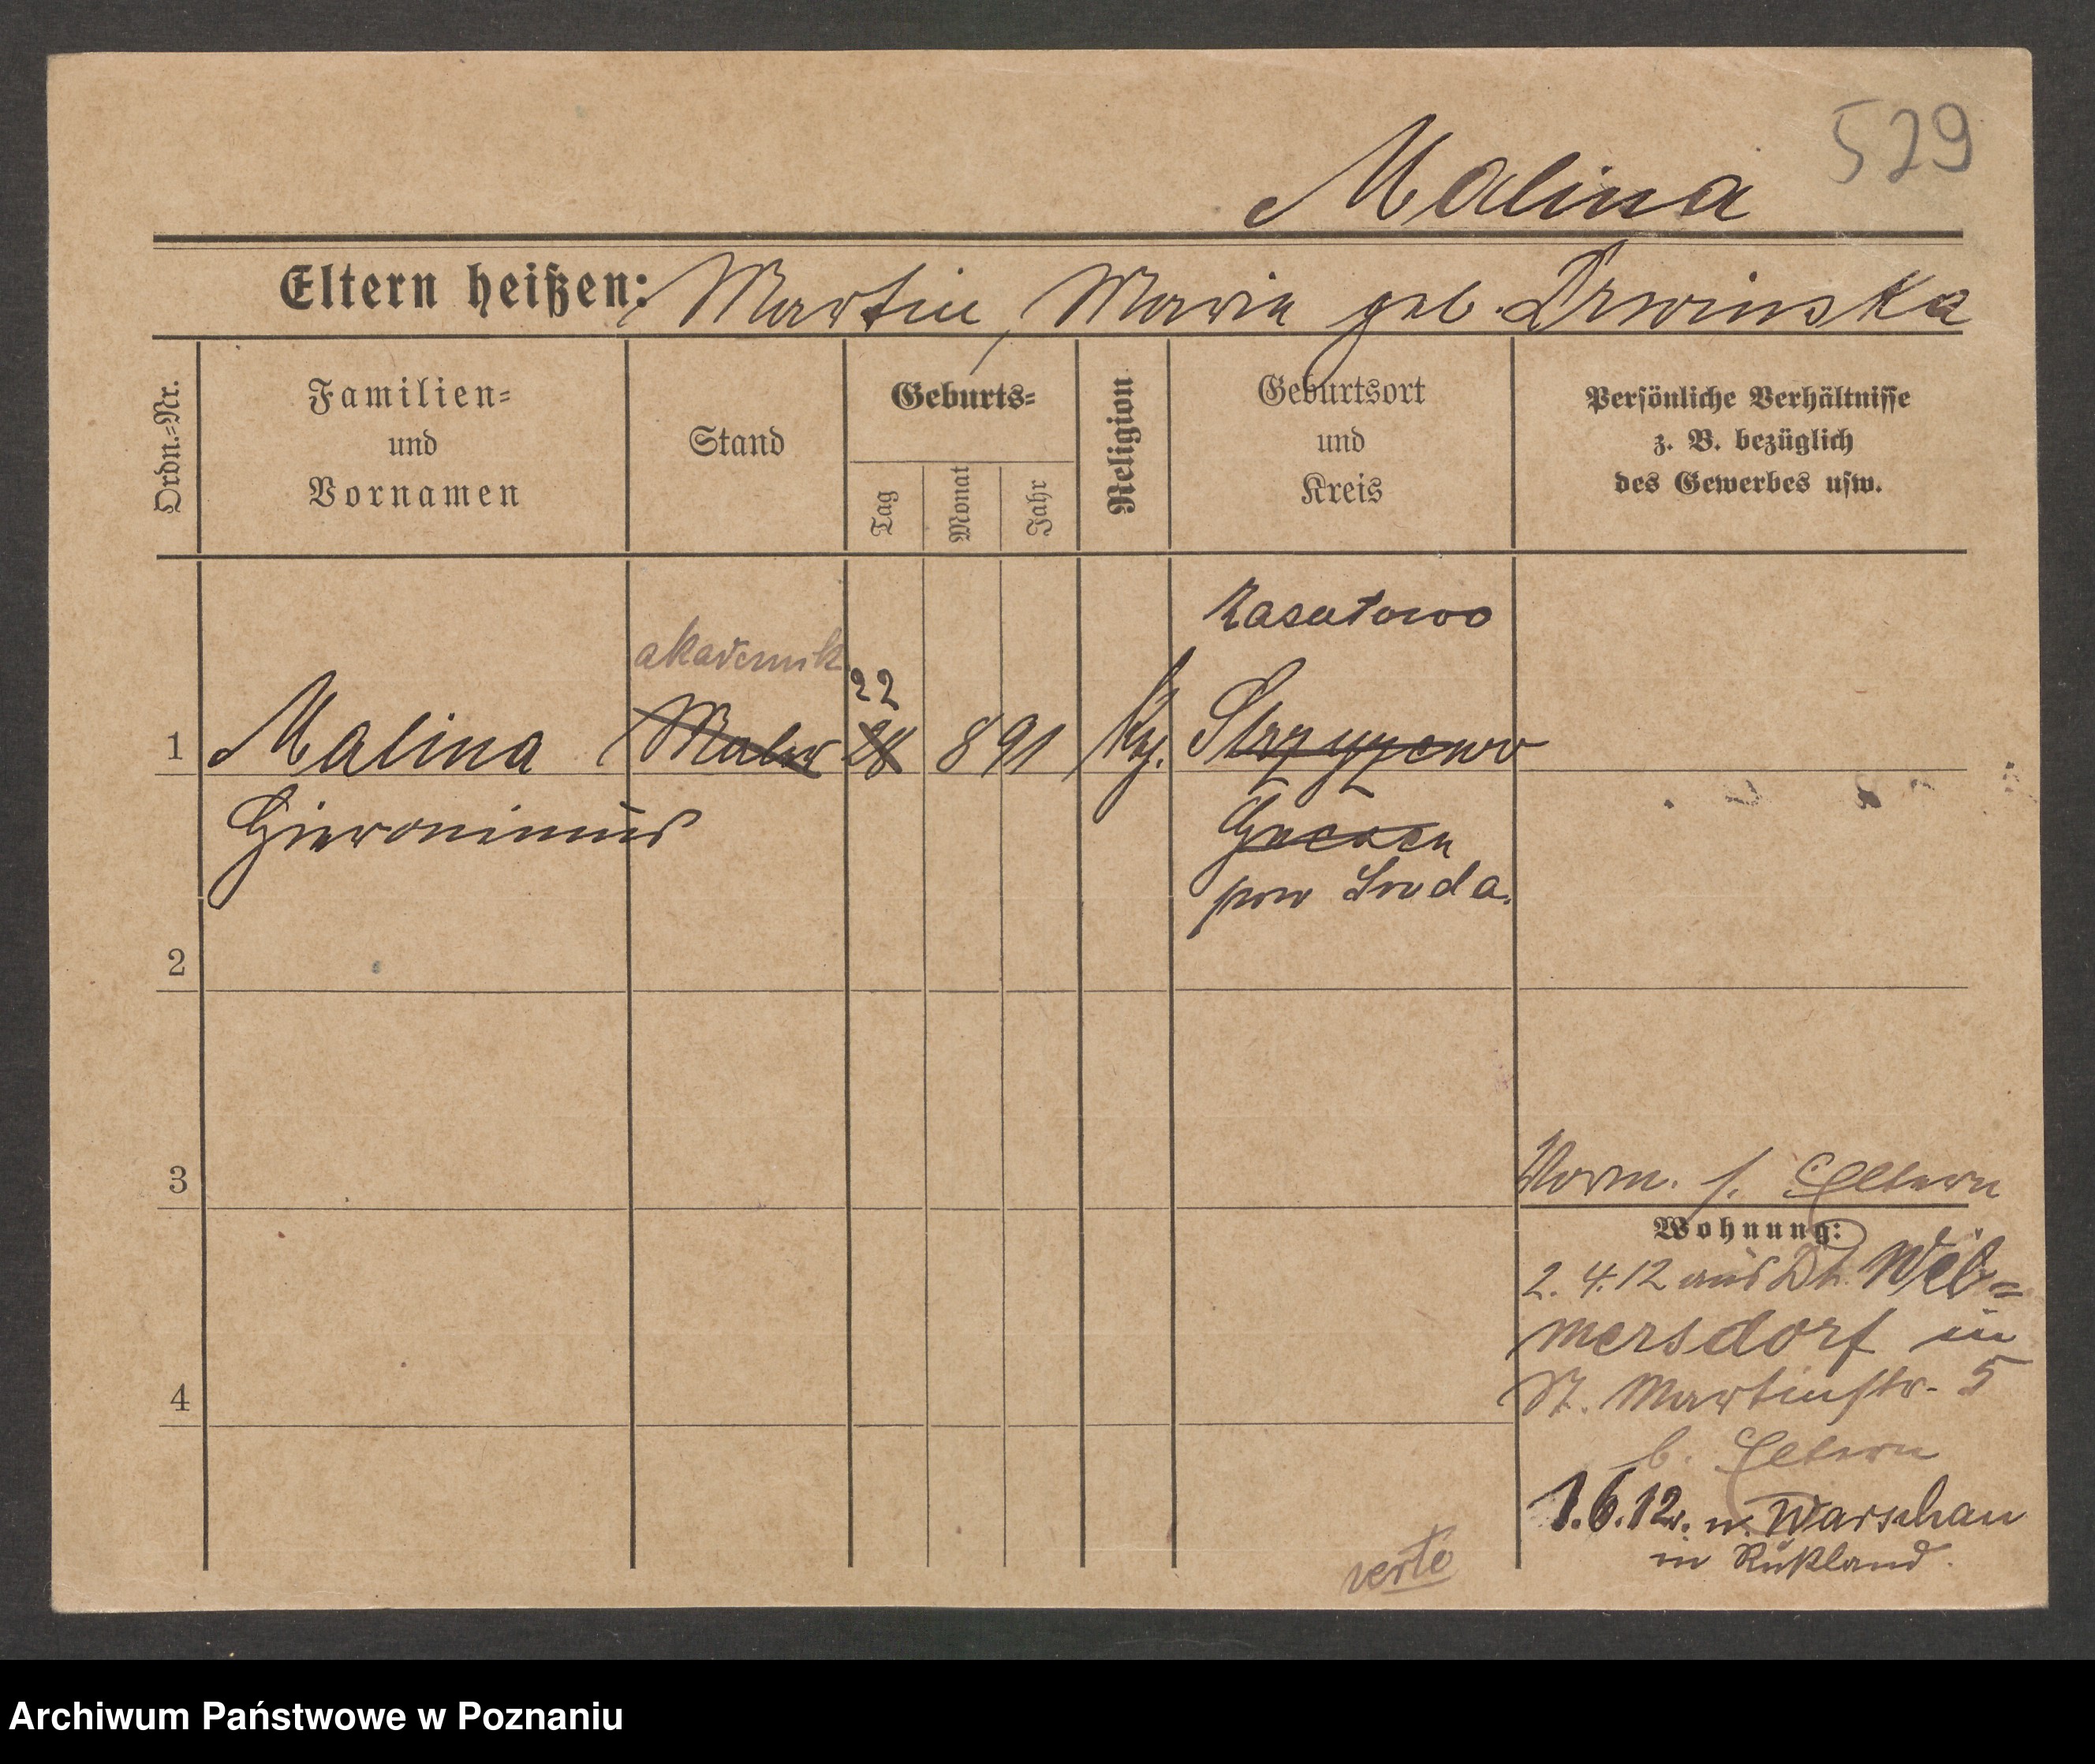 529
Malina
Eltern heißen: Martin, Maria geb. Drwinska
Ordn.=Nr.
Familien=
und
Vornamen
Stand
Geburts=
Tag
Monat
Jahr
Religion
Geburtsort
und
Kreis
Persönliche Verhältnisse
z. B. bezüglich
des Gewerbes usw.
Zasutowo
akademik
22
1 Malina Maler 28 8 91 Strzyzewo
Hieronimus
Gnesen
pow Sroda.
2
3
Vorm. s. Eltern
Wohnung:
2. 4. 12 aus Dt. Wil=
mersdorf in
St. Martinstr. 5
4
b. Eltern
1.6.12. n. Warschau
in Rußland.
verte
Archiwum Państwowe w Poznaniu